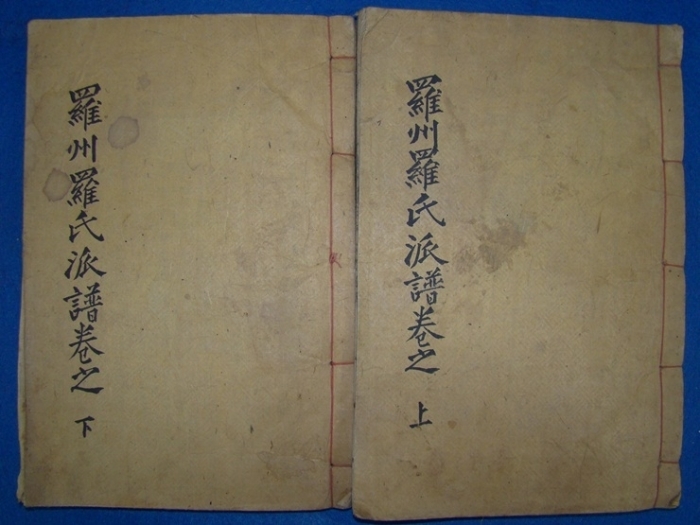 羅州羅氏派譜卷之 上
羅州羅氏派譜卷之 下